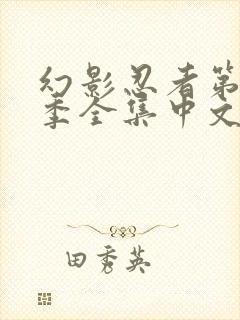 幻影忍者第
季全集中文
田秀英